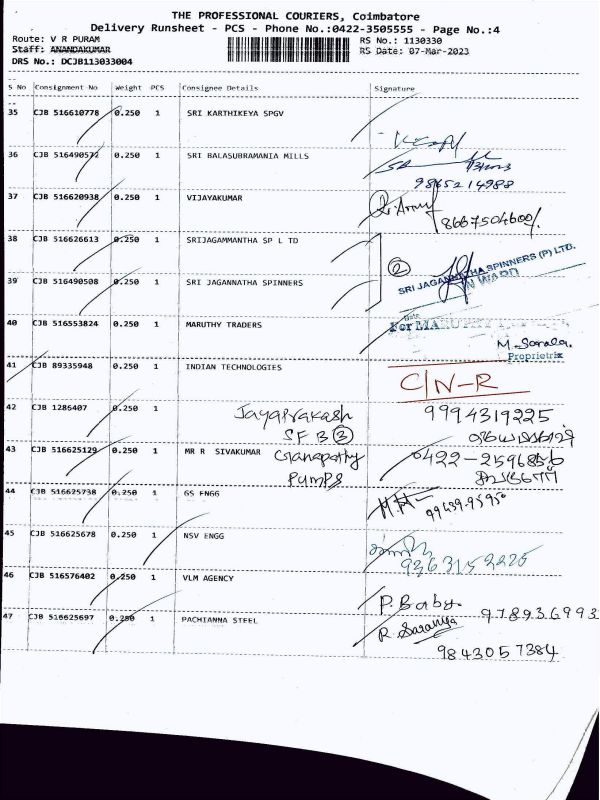 THE PROFESSIONAL COURIERS, Coimbatore
Delivery Runsheet - PCS - Phone No.:0422-3505555 - Page No.:4
Route: V R PURAM RS No.: 1130330
Staff: ANANDAKUMAR RS Date: 07-Mar-2023
DRS No.: DCJB113033004
S No Consignment No Weight PCS Consignee Details Signature
35 CJB 516610778 0.250 1 SRI KARTHIKEYA SPGV
36 CJB 516490572 0.250 1 SRI BALASUBRAMANIA MILLS
9865214988
37 CJB 516620938 0.250 1 VIJAYAKUMAR
8667504600/.
38 CJB 516626613 0.250 1 SRIJAGAMMANTHA SP L TD
2
SRI JAGANNATHA SPINNERS (P) LTD.
IN WARD
39 CJB 516490508 0.250 1 SRI JAGANNATHA SPINNERS
40 CJB 516553824 0.250 1 MARUTHY TRADERS
For MARUTHY
M. Sarala.
Proprietrix
41 CJB 89335948 0.250 1 INDIAN TECHNOLOGIES
C/N-R
42 CJB 1286407 0.250 1 Jayaprakash 9994319225
SFB 3
43 CJB 516625129 0.250 1 MR R SIVAKUMAR Ganapathy 0422-2596856
PUMPS
44 CJB 516625738 0.250 1 GS ENGG
99439-95950
45 CJB 516625678 0.250 1 NSV ENGG
9363152226
46 CJB 516576402 0.250 1 VLM AGENCY
P. Baby. 978936993
47 CJB 516625697 0.250 1 PACHIANNA STEEL R. Saranya
9843057384